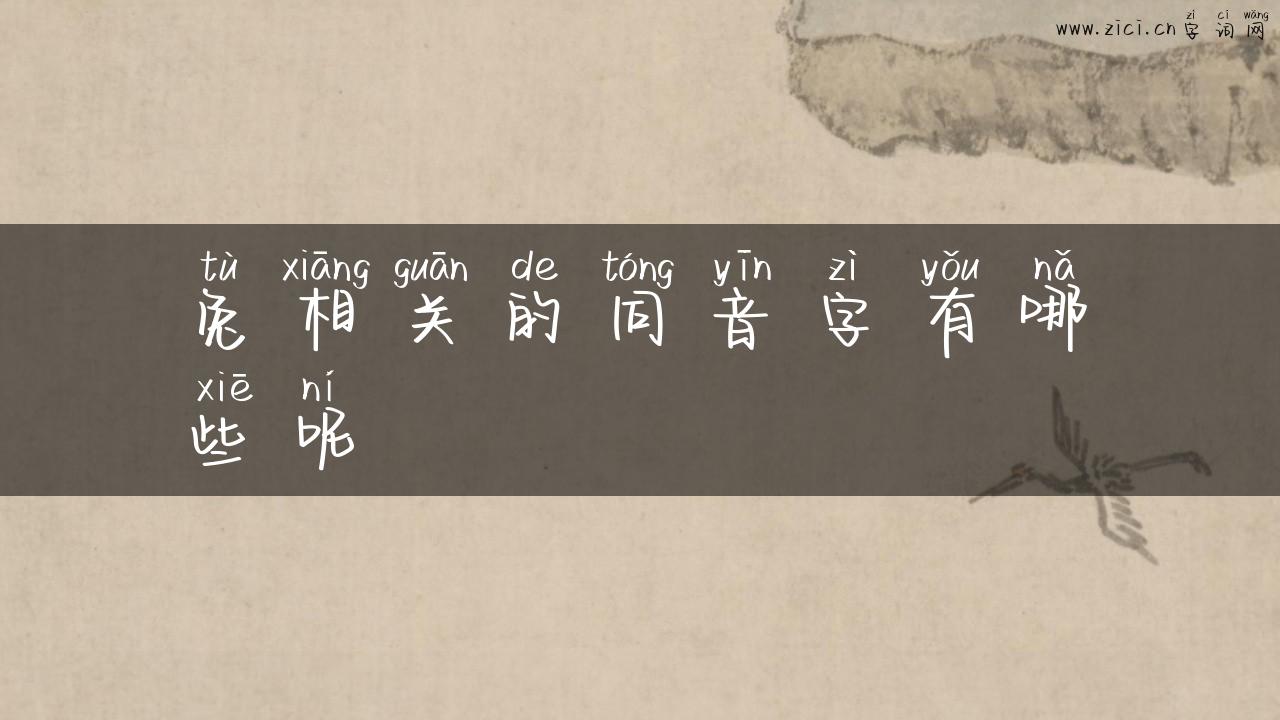 zì cí wǎng
www.zici.cn 字词网
tù xiāng guān de tóng yīn zì yǒu nǎ
兔相关的同音字有哪
xiē ní
些呢